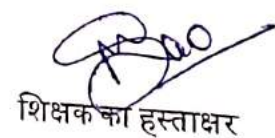 शिक्षक का हस्ताक्षर